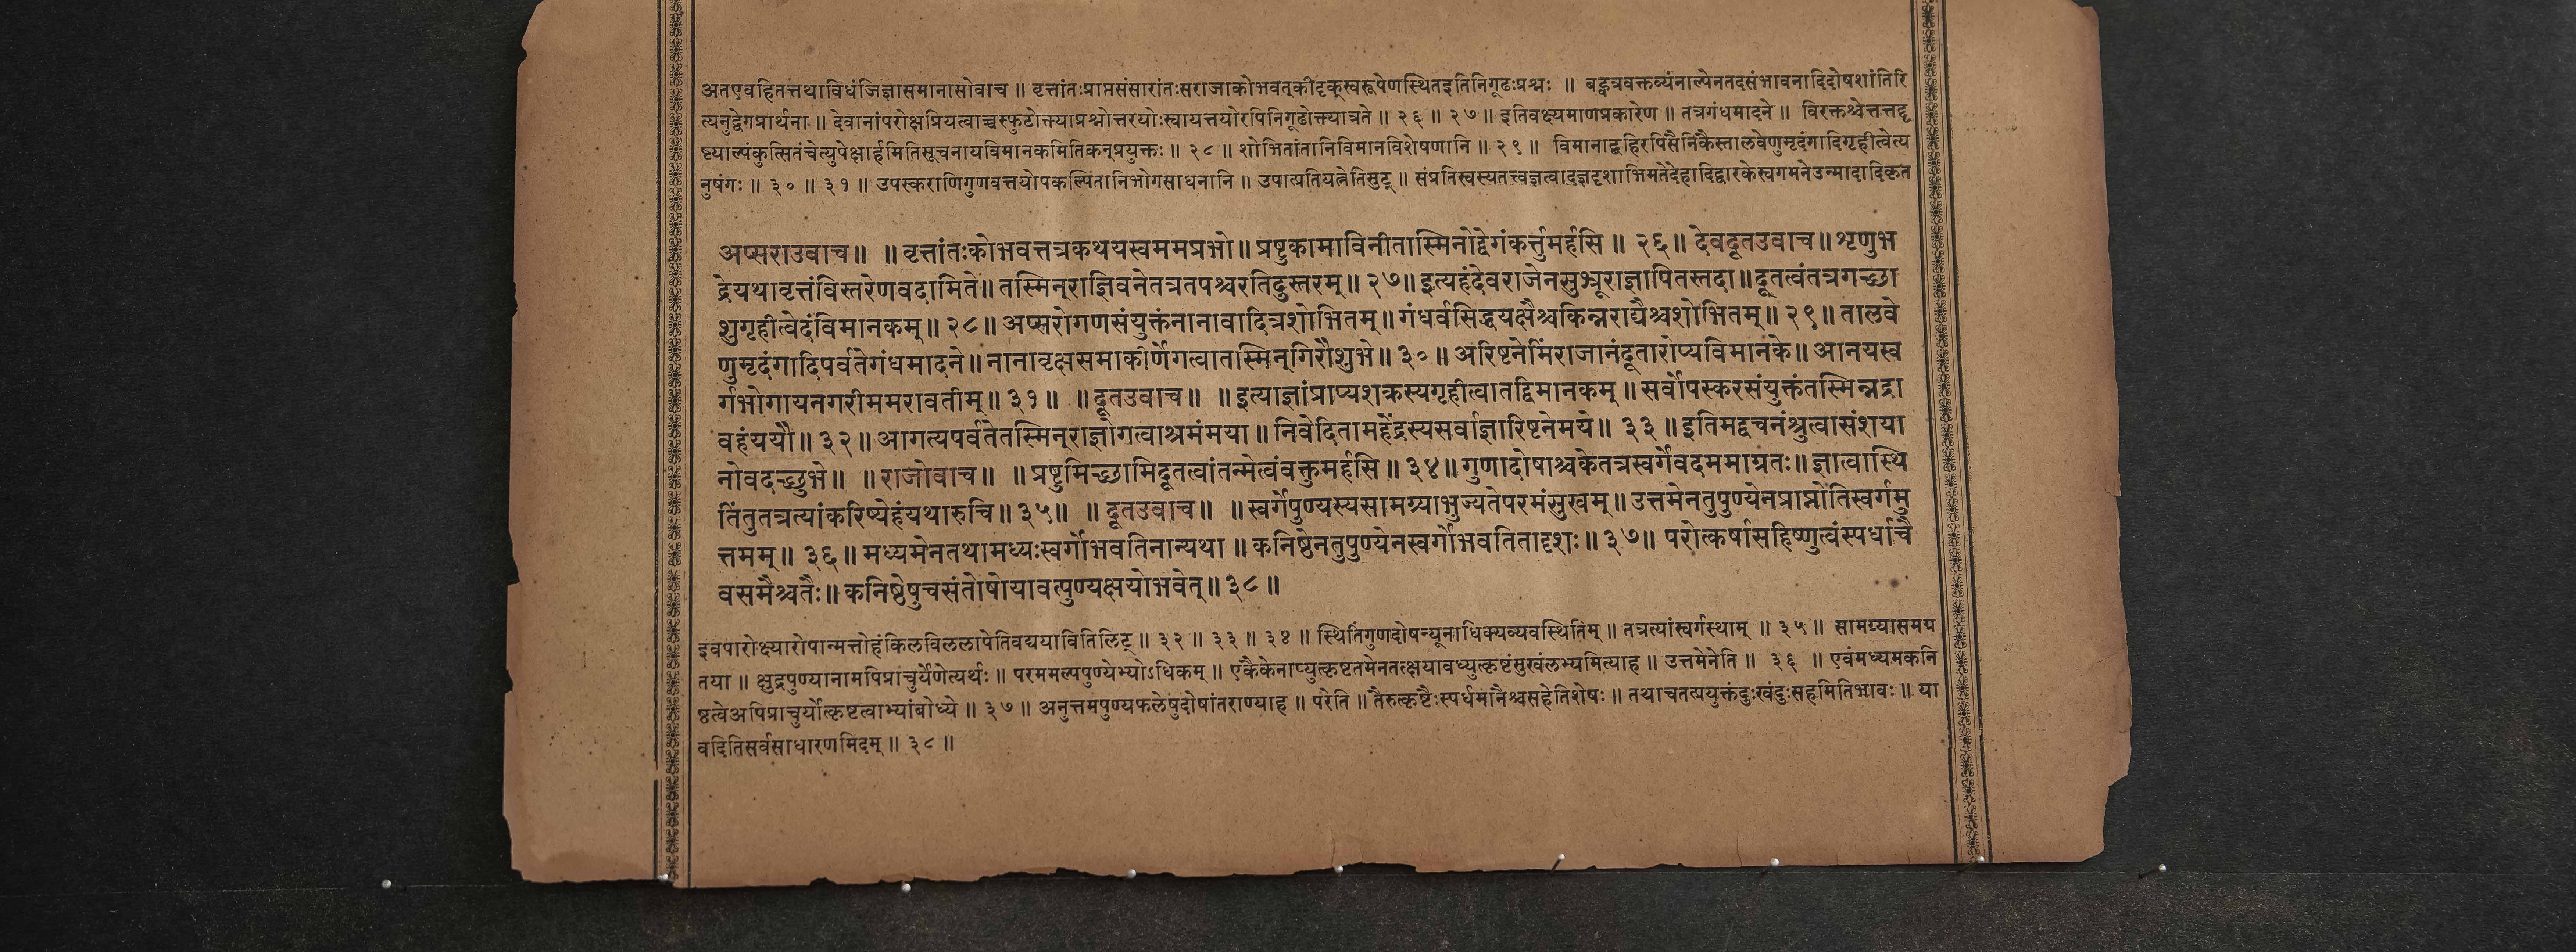 अतएवहितत्तथाविधंजिज्ञासमानासोवाच ॥ वृत्तांतःप्राप्तसंसारांतःसराजाकोभवत्कीदृक्स्वरूपेणस्थितइतिनिगूढःप्रश्नः ॥ बह्वत्रवक्तव्यंनाल्पेनतदसंभावनादिदोषशांतिरि
त्यनुद्वेगप्रार्थना ॥ देवानांपरोक्षप्रियत्वाच्चस्फुटोक्त्याप्रश्नोत्तरयोःस्वायत्तयोरपिनिगूढोक्त्यात्रते ॥ २६ ॥ २७ ॥ इतिवक्ष्यमाणप्रकारेण ॥ तत्रगंधमादने ॥ विरक्तश्चेत्तत्तद्दृ
ष्ट्याल्पंकुत्सितंचेत्युपेक्षार्हमितिसूचनायविमानकमितिकन्प्रयुक्तः ॥ २८ ॥ शोभितांतानिविमानविशेषणानि ॥ २९ ॥ विमानाद्बहिरपिसैनिकैस्तालवेणुमृदंगादिगृहीत्वेत्य
नुषंगः ॥ ३० ॥ ३१ ॥ उपस्कराणिगुणवत्तयोपकल्पितानिभोगसाधनानि ॥ उपात्प्रतियत्नेतिसुट् ॥ संप्रतिस्वस्यतत्त्वज्ञत्वादज्ञदृशाभिमतेदेहादिद्वारकेस्वगमनेउन्मादादिकृत
अप्सराउवाच ॥ ॥ वृत्तांतःकोभवत्तत्रकथयस्वममप्रभो ॥ प्रष्टुकामाविनीतास्मिनोद्वेगंकर्त्तुमर्हसि ॥ २६ ॥ देवदूतउवाच ॥ शृणुभ
द्रेयथावृत्तंविस्तरेणवदामिते ॥ तस्मिन्राज्ञिवनेतत्रतपश्चरतिदुस्तरम् ॥ २७ ॥ इत्यहंदेवराजेनसुभ्रूराज्ञापितस्तदा ॥ दूतत्वंतत्रगच्छा
शुगृहीत्वेदंविमानकम् ॥ २८ ॥ अप्सरोगणसंयुक्तंनानावादित्रशोभितम् ॥ गंधर्वसिद्धयक्षैश्चकिन्नराद्यैश्चशोभितम् ॥ २९ ॥ तालवे
णुमृदंगादिपर्वतेगंधमादने ॥ नानावृक्षसमाकीर्णेगत्वातस्मिन्गिरौशुभे ॥ ३० ॥ अरिष्टनेमिंराजानंदूतारोप्यविमानके ॥ आनयस्व
र्गभोगायनगरीममरावतीम् ॥ ३१ ॥ ॥ दूतउवाच ॥ ॥ इत्याज्ञांप्राप्यशक्रस्यगृहीत्वातद्विमानकम् ॥ सर्वोपस्करसंयुक्तंतस्मिन्नद्रा
वहंययौ ॥ ३२ ॥ आगत्यपर्वतेतस्मिन्राज्ञोगत्वाश्रमंमया ॥ निवेदितामहेंद्रस्यसर्वाज्ञारिष्टनेमये ॥ ३३ ॥ इतिमद्वचनंश्रुत्वासंशया
नोवदच्छुभे ॥ ॥ राजोवाच ॥ ॥ प्रष्टुमिच्छामिदूतत्वांतन्मेत्वंवक्तुमर्हसि ॥ ३४ ॥ गुणादोषाश्चकेतत्रस्वर्गेवदममाग्रतः ॥ ज्ञात्वास्थि
तिंतुतत्रत्यांकरिष्येहंयथारुचि ॥ ३५ ॥ ॥ दूतउवाच ॥ ॥ स्वर्गेपुण्यस्यसामग्र्याभुज्यतेपरमंसुखम् ॥ उत्तमेनतुपुण्येनप्राप्नोतिस्वर्गमु
त्तमम् ॥ ३६ ॥ मध्यमेनतथामध्यःस्वर्गोभवतिनान्यथा ॥ कनिष्ठेनतुपुण्येनस्वर्गोभवतितादृशः ॥ ३७ ॥ परोत्कर्षासहिष्णुत्वंस्पर्धाचै
वसमैश्चतैः ॥ कनिष्ठेषुचसंतोषोयावत्पुण्यक्षयोभवेत् ॥ ३८ ॥
इवपारोक्ष्यारोपान्मत्तोहंकिलविललापेतिवद्ययावितिलिट् ॥ ३२ ॥ ३३ ॥ ३४ ॥ स्थितिंगुणदोषन्यूनाधिक्यव्यवस्थितिम् ॥ तत्रत्यांस्वर्गस्थाम् ॥ ३५ ॥ सामग्र्यासमग्र
तया ॥ क्षुद्रपुण्यानामपिप्राचुर्येणेत्यर्थः ॥ परममल्पपुण्येभ्योऽधिकम् ॥ एकैकेनाप्युत्कृष्टतमेनतत्क्षयावध्युत्कृष्टंसुखंलभ्यमित्याह ॥ उत्तमेनेति ॥ ३६ ॥ एवंमध्यमकनि
ष्ठत्वेअपिप्राचुर्योत्कृष्टत्वाभ्यांबोध्ये ॥ ३७ ॥ अनुत्तमपुण्यफलेषुदोषांतराण्याह ॥ परेति ॥ तैरुत्कृष्टैःस्पर्धमानैश्चसहेतिशेषः ॥ तथाचतत्प्रयुक्तंदुःखंदुःसहमितिभावः ॥ या
वदितिसर्वसाधारणमिदम् ॥ ३८ ॥